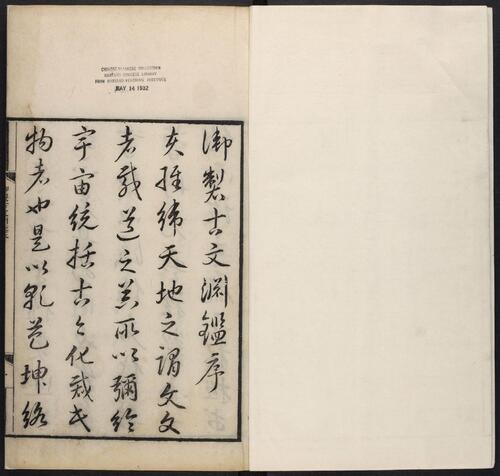 CHINESE-JAPANESE COLLECTION
HARVARD COLLEGE LIBRARY
FROM HARVARD-YENCHING INSTITUTE
MAY 14 1932
御製古文淵鑑序
夫經緯天地之謂文文
者載道之器所以彌綸
宇宙統括古今化裁民
物者也是以乾苞坤絡